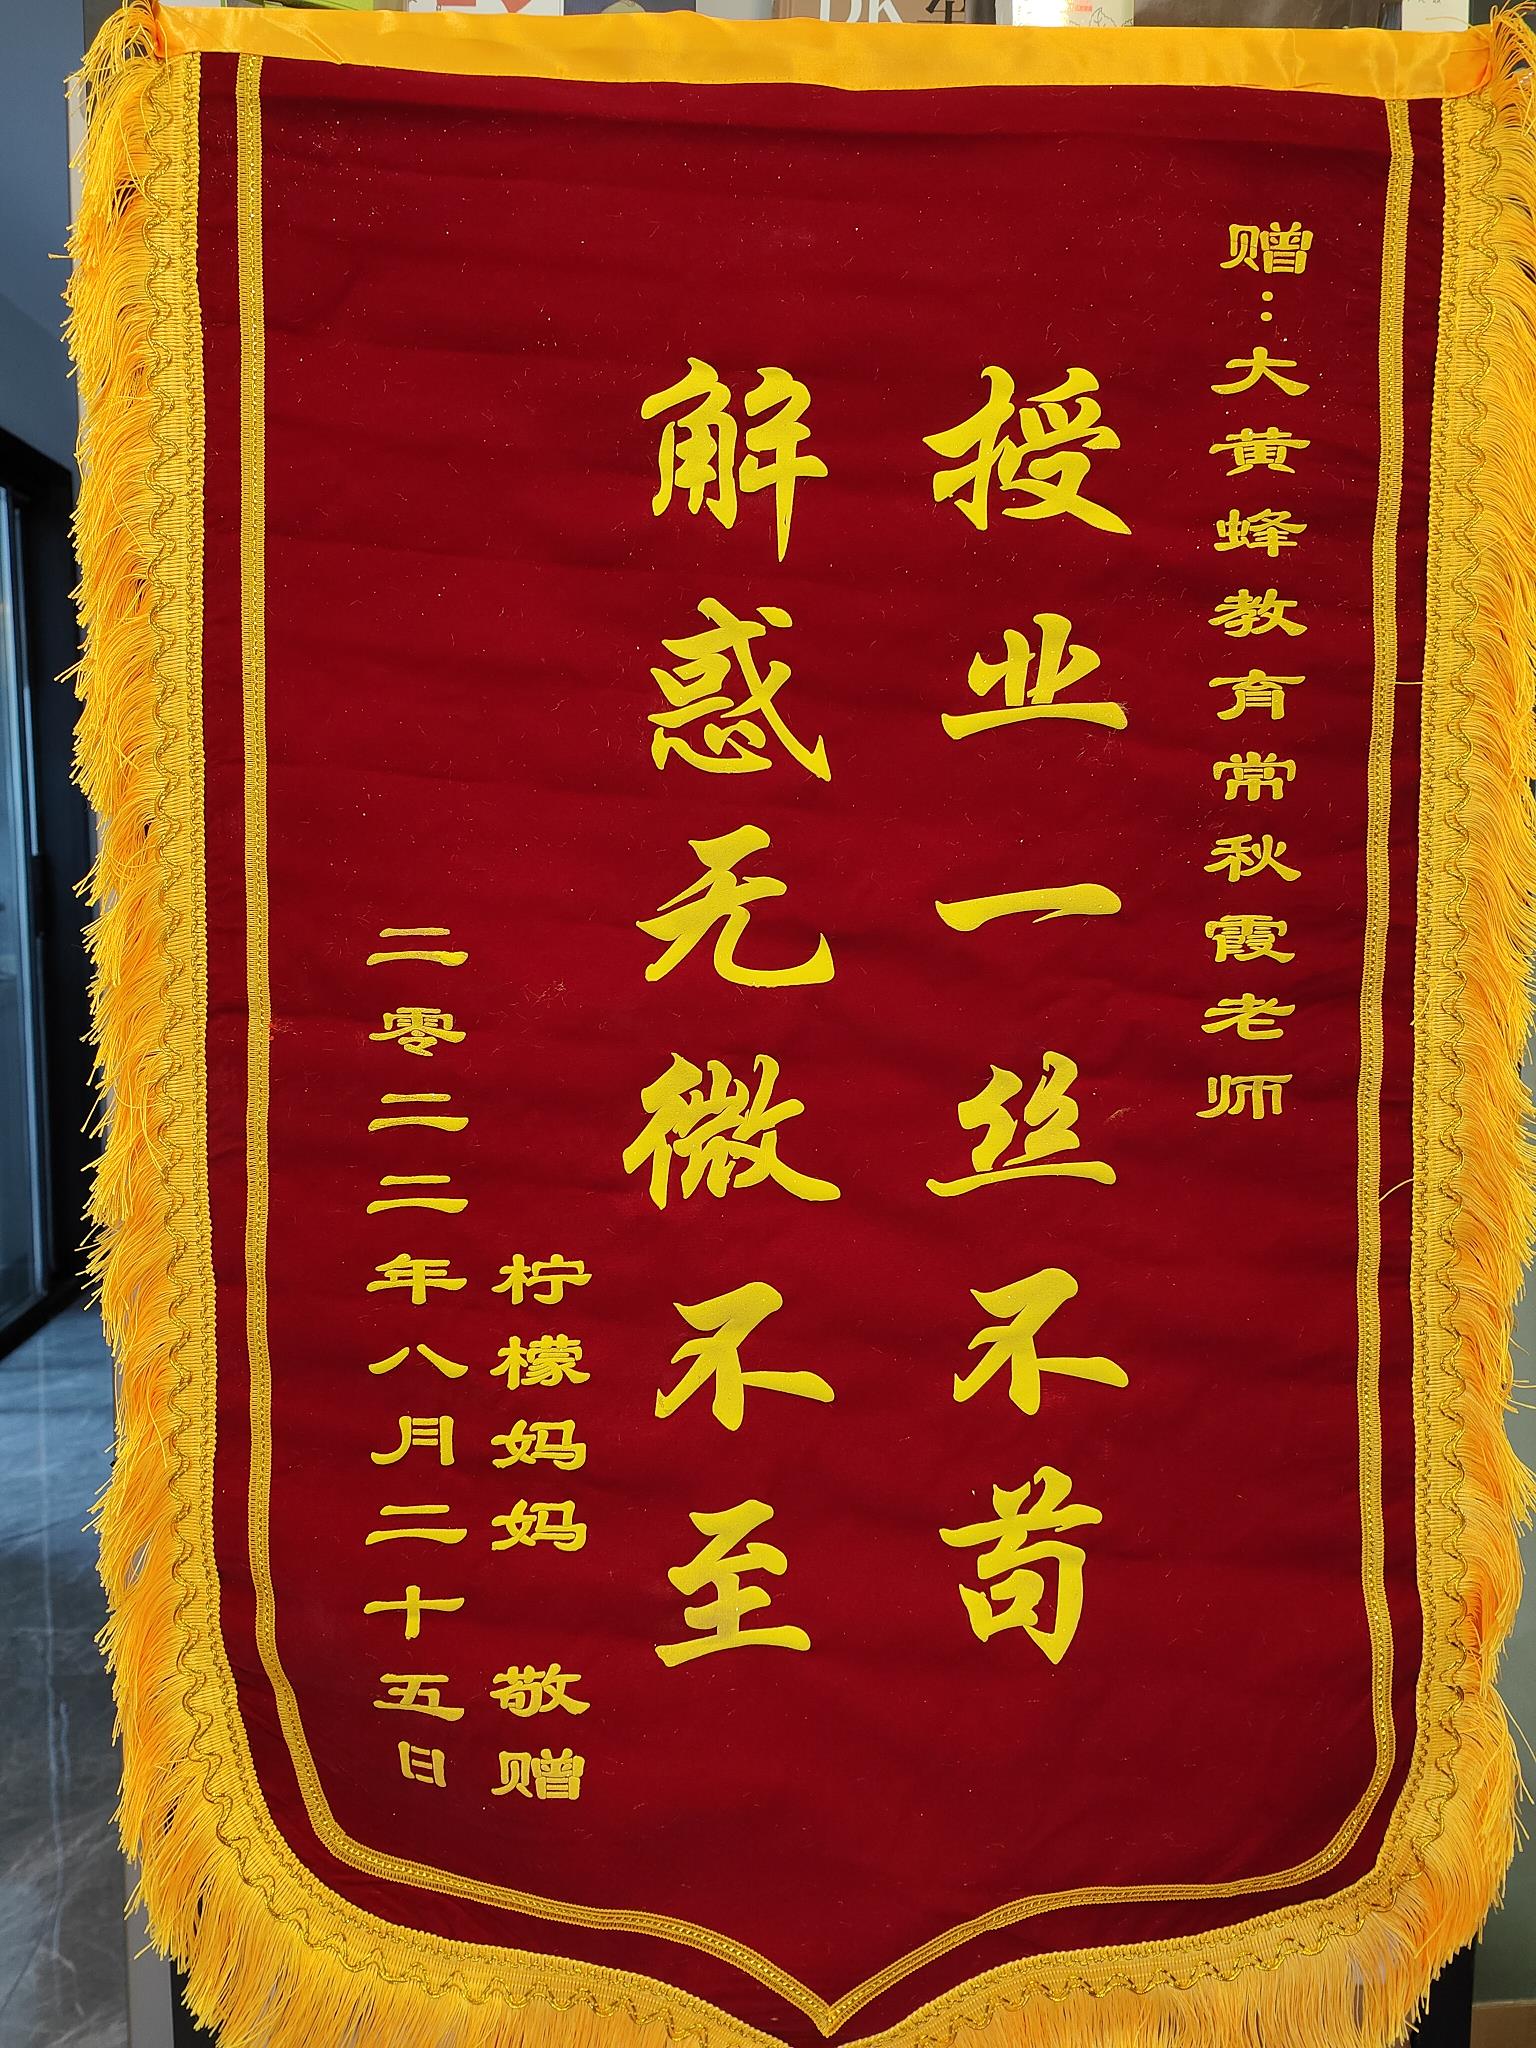 赠：大黄蜂教育常秋霞老师
授业一丝不苟
解惑无微不至
柠檬妈妈 敬赠
二零二二年八月二十五日